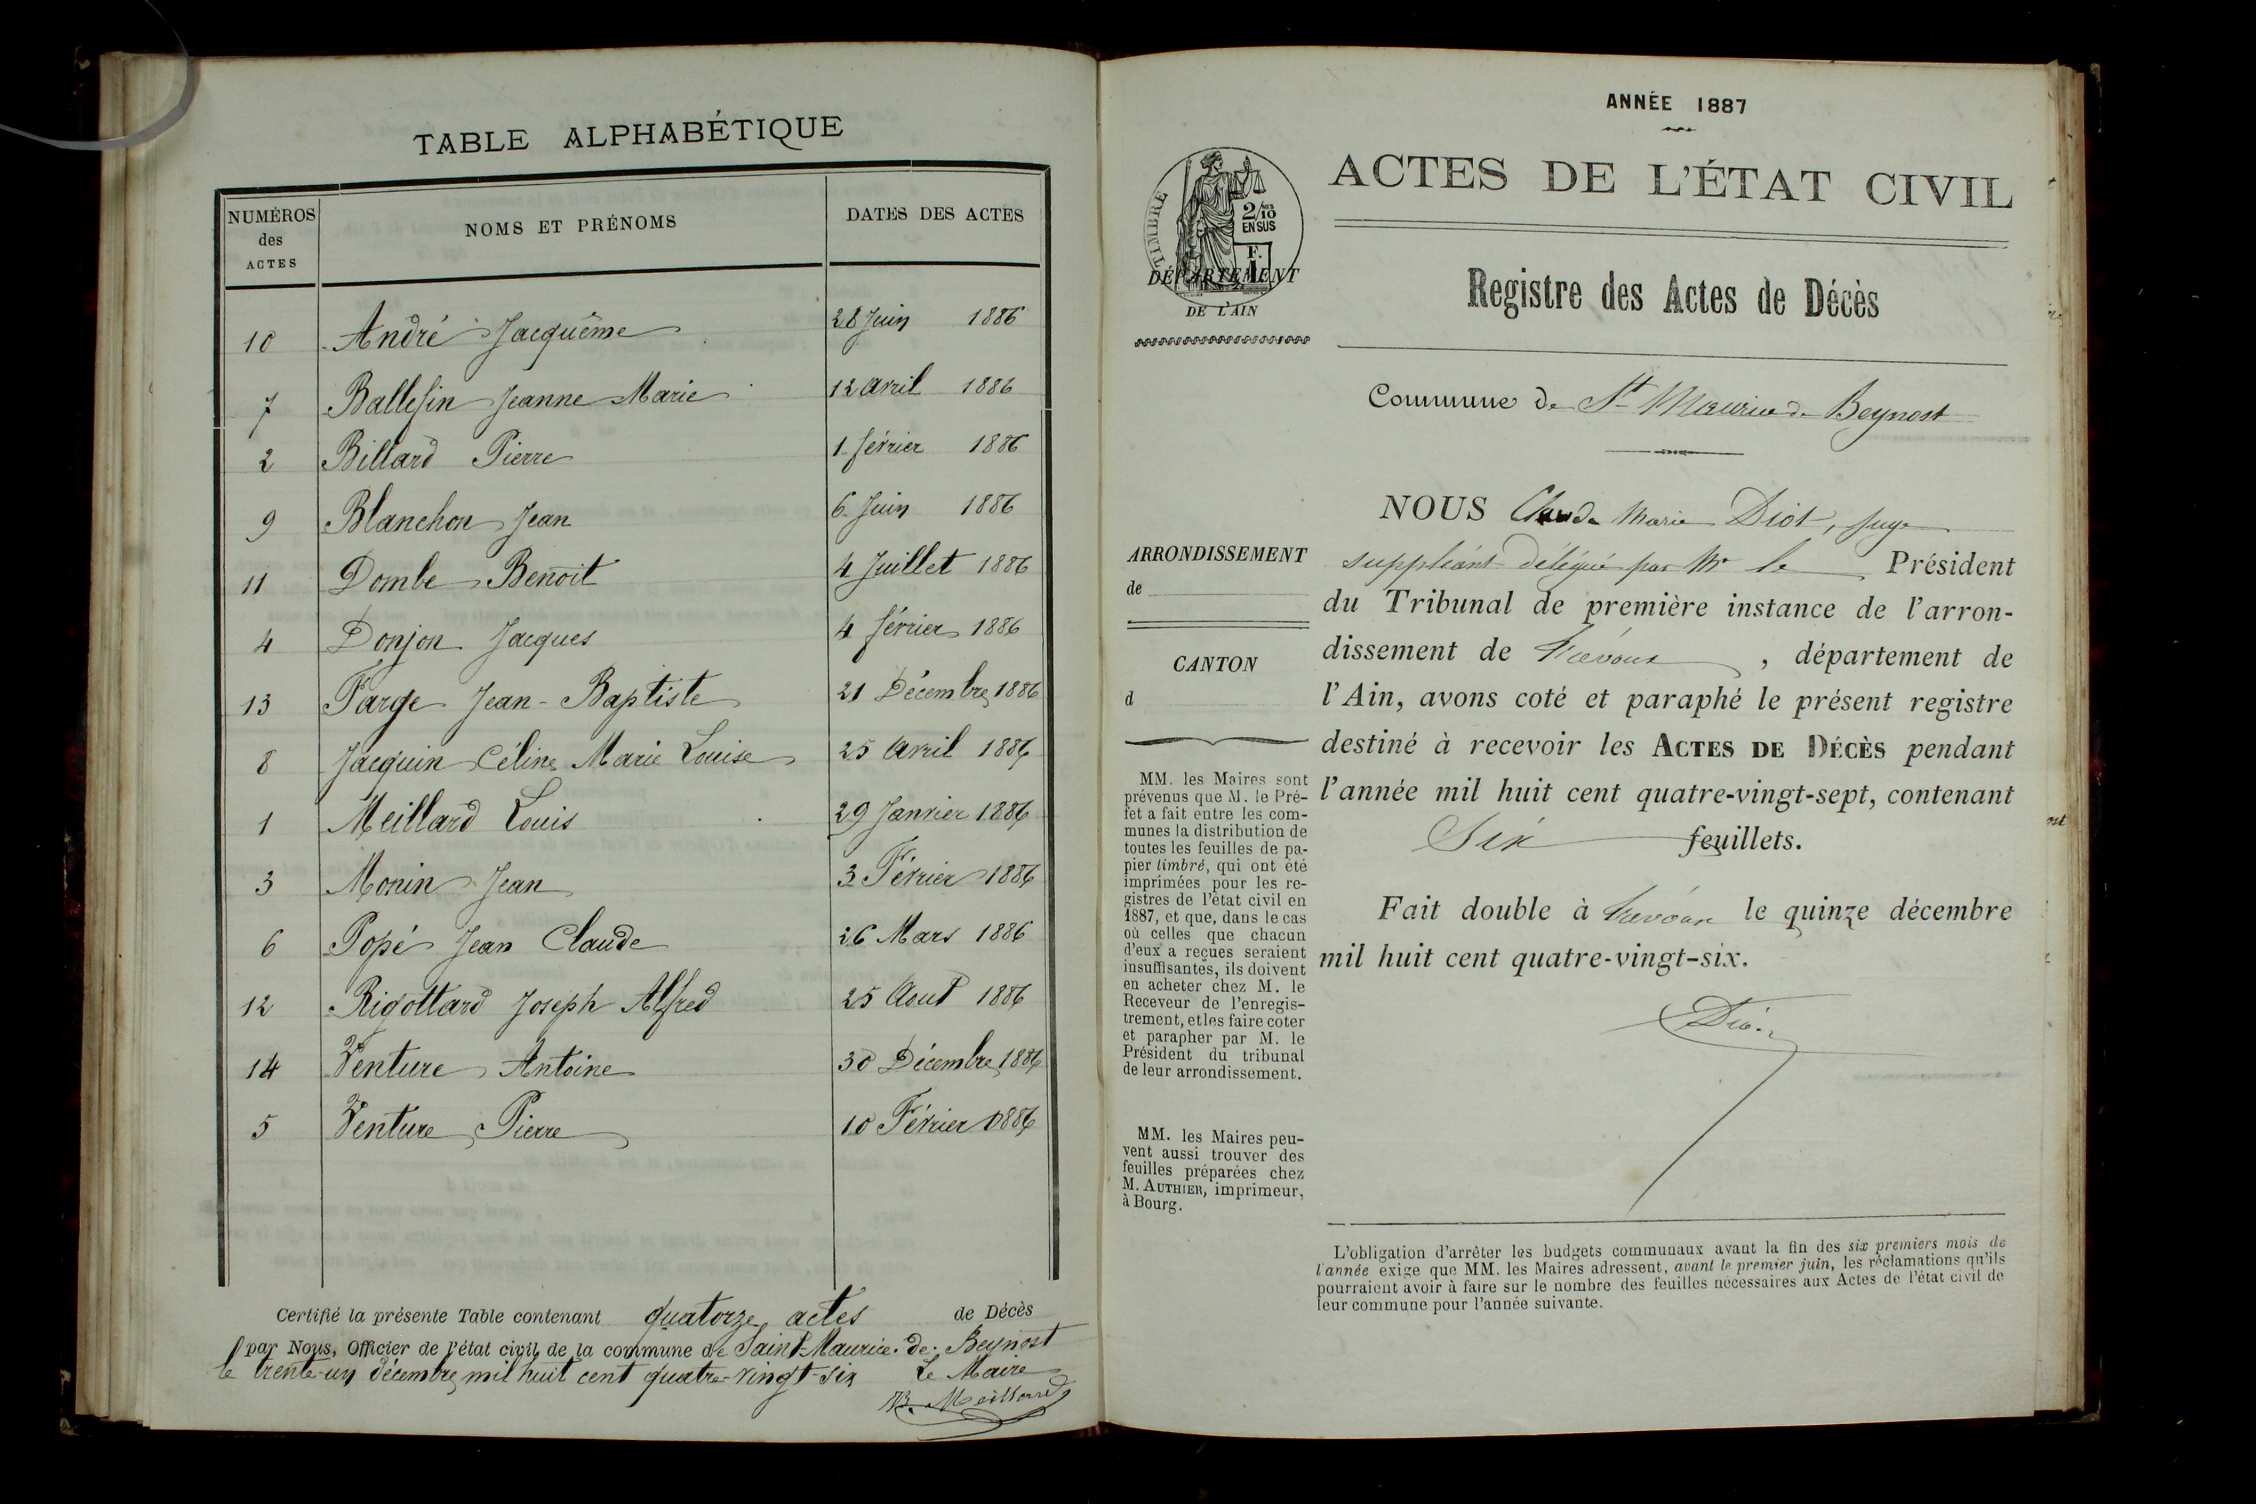 TABLE ALPHABÉTIQUE
NUMÉROS des ACTES NOMS ET PRÉNOMS DATES DES ACTES
10 André Jacquême 28 Juin 1886
7 Ballefin Jeanne Marie 12 avril 1886
2 Billard Pierre 1 février 1886
9 Blanchon Jean 6 Juin 1886
11 Dombe Benoit 4 Juillet 1886
4 Donjon Jacques 4 février 1886
13 Farge Jean-Baptiste 21 Décembre 1886
8 Jacquin Céline Marie Louise 25 avril 1886
1 Meillard Louis 29 Janvier 1886
3 Monin Jean 3 Février 1886
6 Popé Jean Claude 26 Mars 1886
12 Rigottard Joseph Alfred 25 Aout 1886
14 Venture Antoine 30 Décembre 1886
5 Venture Pierre 10 Février 1886
Certifié la présente Table contenant quatorze actes de Décès
par Nous, Officier de l'état civil de la commune de Saint-Maurice-de-Beynost
le trente-un décembre mil huit cent quatre-vingt-six Le Maire
Meillard
ANNÉE 1887
ACTES DE L'ÉTAT CIVIL
TIMBRE
2/10
EN SUS
F.
DÉPARTEMENT
DE L'AIN
Registre des Actes de Décès
Commune de St Maurice de Beynost
ARRONDISSEMENT
de
CANTON
d
MM. les Maires sont
prévenus que M. le Pré-
fet a fait entre les com-
munes la distribution de
toutes les feuilles de pa-
pier timbré, qui ont été
imprimées pour les re-
gistres de l'état civil en
1887, et que, dans le cas
où celles que chacun
d'eux a reçues seraient
insuffisantes, ils doivent
en acheter chez M. le
Receveur de l'enregis-
trement, et les faire coter
et parapher par M. le
Président du tribunal
de leur arrondissement.
MM. les Maires peu-
vent aussi trouver des
feuilles préparées chez
M. AUTHIER, imprimeur,
à Bourg.
NOUS Claude Marie Diot, Juge
suppléant délégué par Mr le Président
du Tribunal de première instance de l'arron-
dissement de Trévoux, département de
l'Ain, avons coté et paraphé le présent registre
destiné à recevoir les ACTES DE DÉCÈS pendant
l'année mil huit cent quatre-vingt-sept, contenant
Six feuillets.
Fait double à Trévoux le quinze décembre
mil huit cent quatre-vingt-six.
Diot
L'obligation d'arrêter les budgets communaux avant la fin des six premiers mois de
l'année exige que MM. les Maires adressent, avant le premier juin, les réclamations qu'ils
pourraient avoir à faire sur le nombre des feuilles nécessaires aux Actes de l'état civil de
leur commune pour l'année suivante.